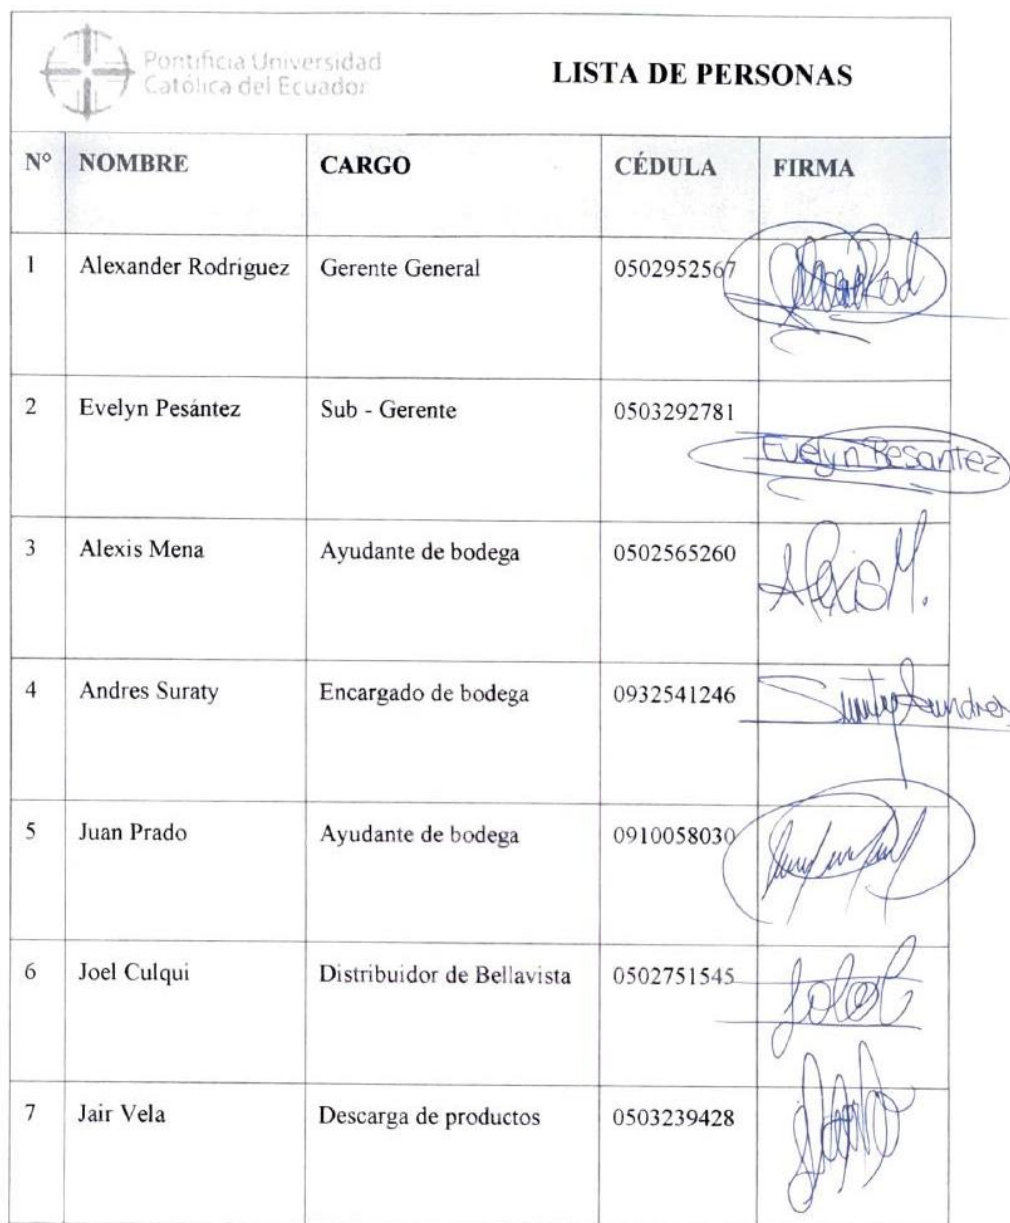 Pontificia Universidad
Católica del Ecuador
LISTA DE PERSONAS
N° NOMBRE CARGO CÉDULA FIRMA
1 Alexander Rodriguez Gerente General 0502952567
2 Evelyn Pesántez Sub - Gerente 0503292781
Evelyn Pesantez
3 Alexis Mena Ayudante de bodega 0502565260
Alexis M.
4 Andres Suraty Encargado de bodega 0932541246
5 Juan Prado Ayudante de bodega 0910058030
6 Joel Culqui Distribuidor de Bellavista 0502751545
7 Jair Vela Descarga de productos 0503239428